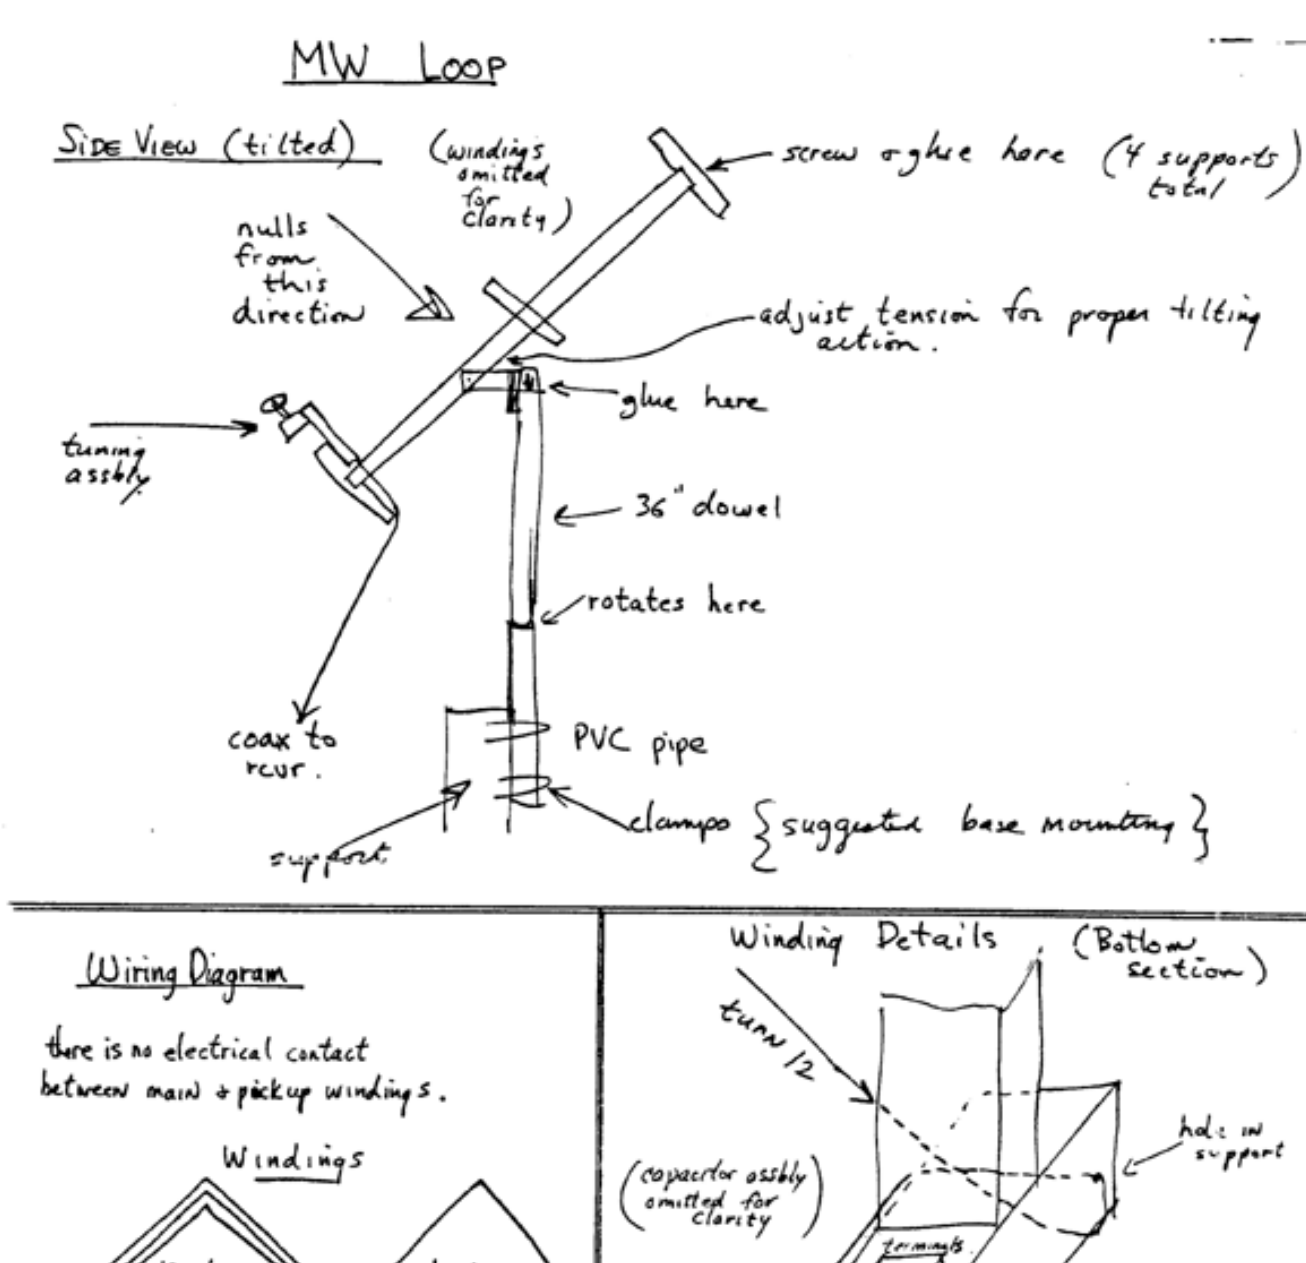 MW LOOP
SIDE VIEW (tilted)
(windings
omitted
for
clarity)
screw & glue here (4 supports
total)
nulls
from
this
direction
adjust tension for proper tilting
action.
glue here
tuning
assbly.
36" dowel
rotates here
coax to
rcvr.
PVC pipe
clamps {suggested base mounting}
support
Wiring Diagram
there is no electrical contact
between main & pickup windings.
Windings
Winding Details (Bottom
section)
turn 12
hole in
support
(capacitor assbly
omitted for
clarity)
terminals